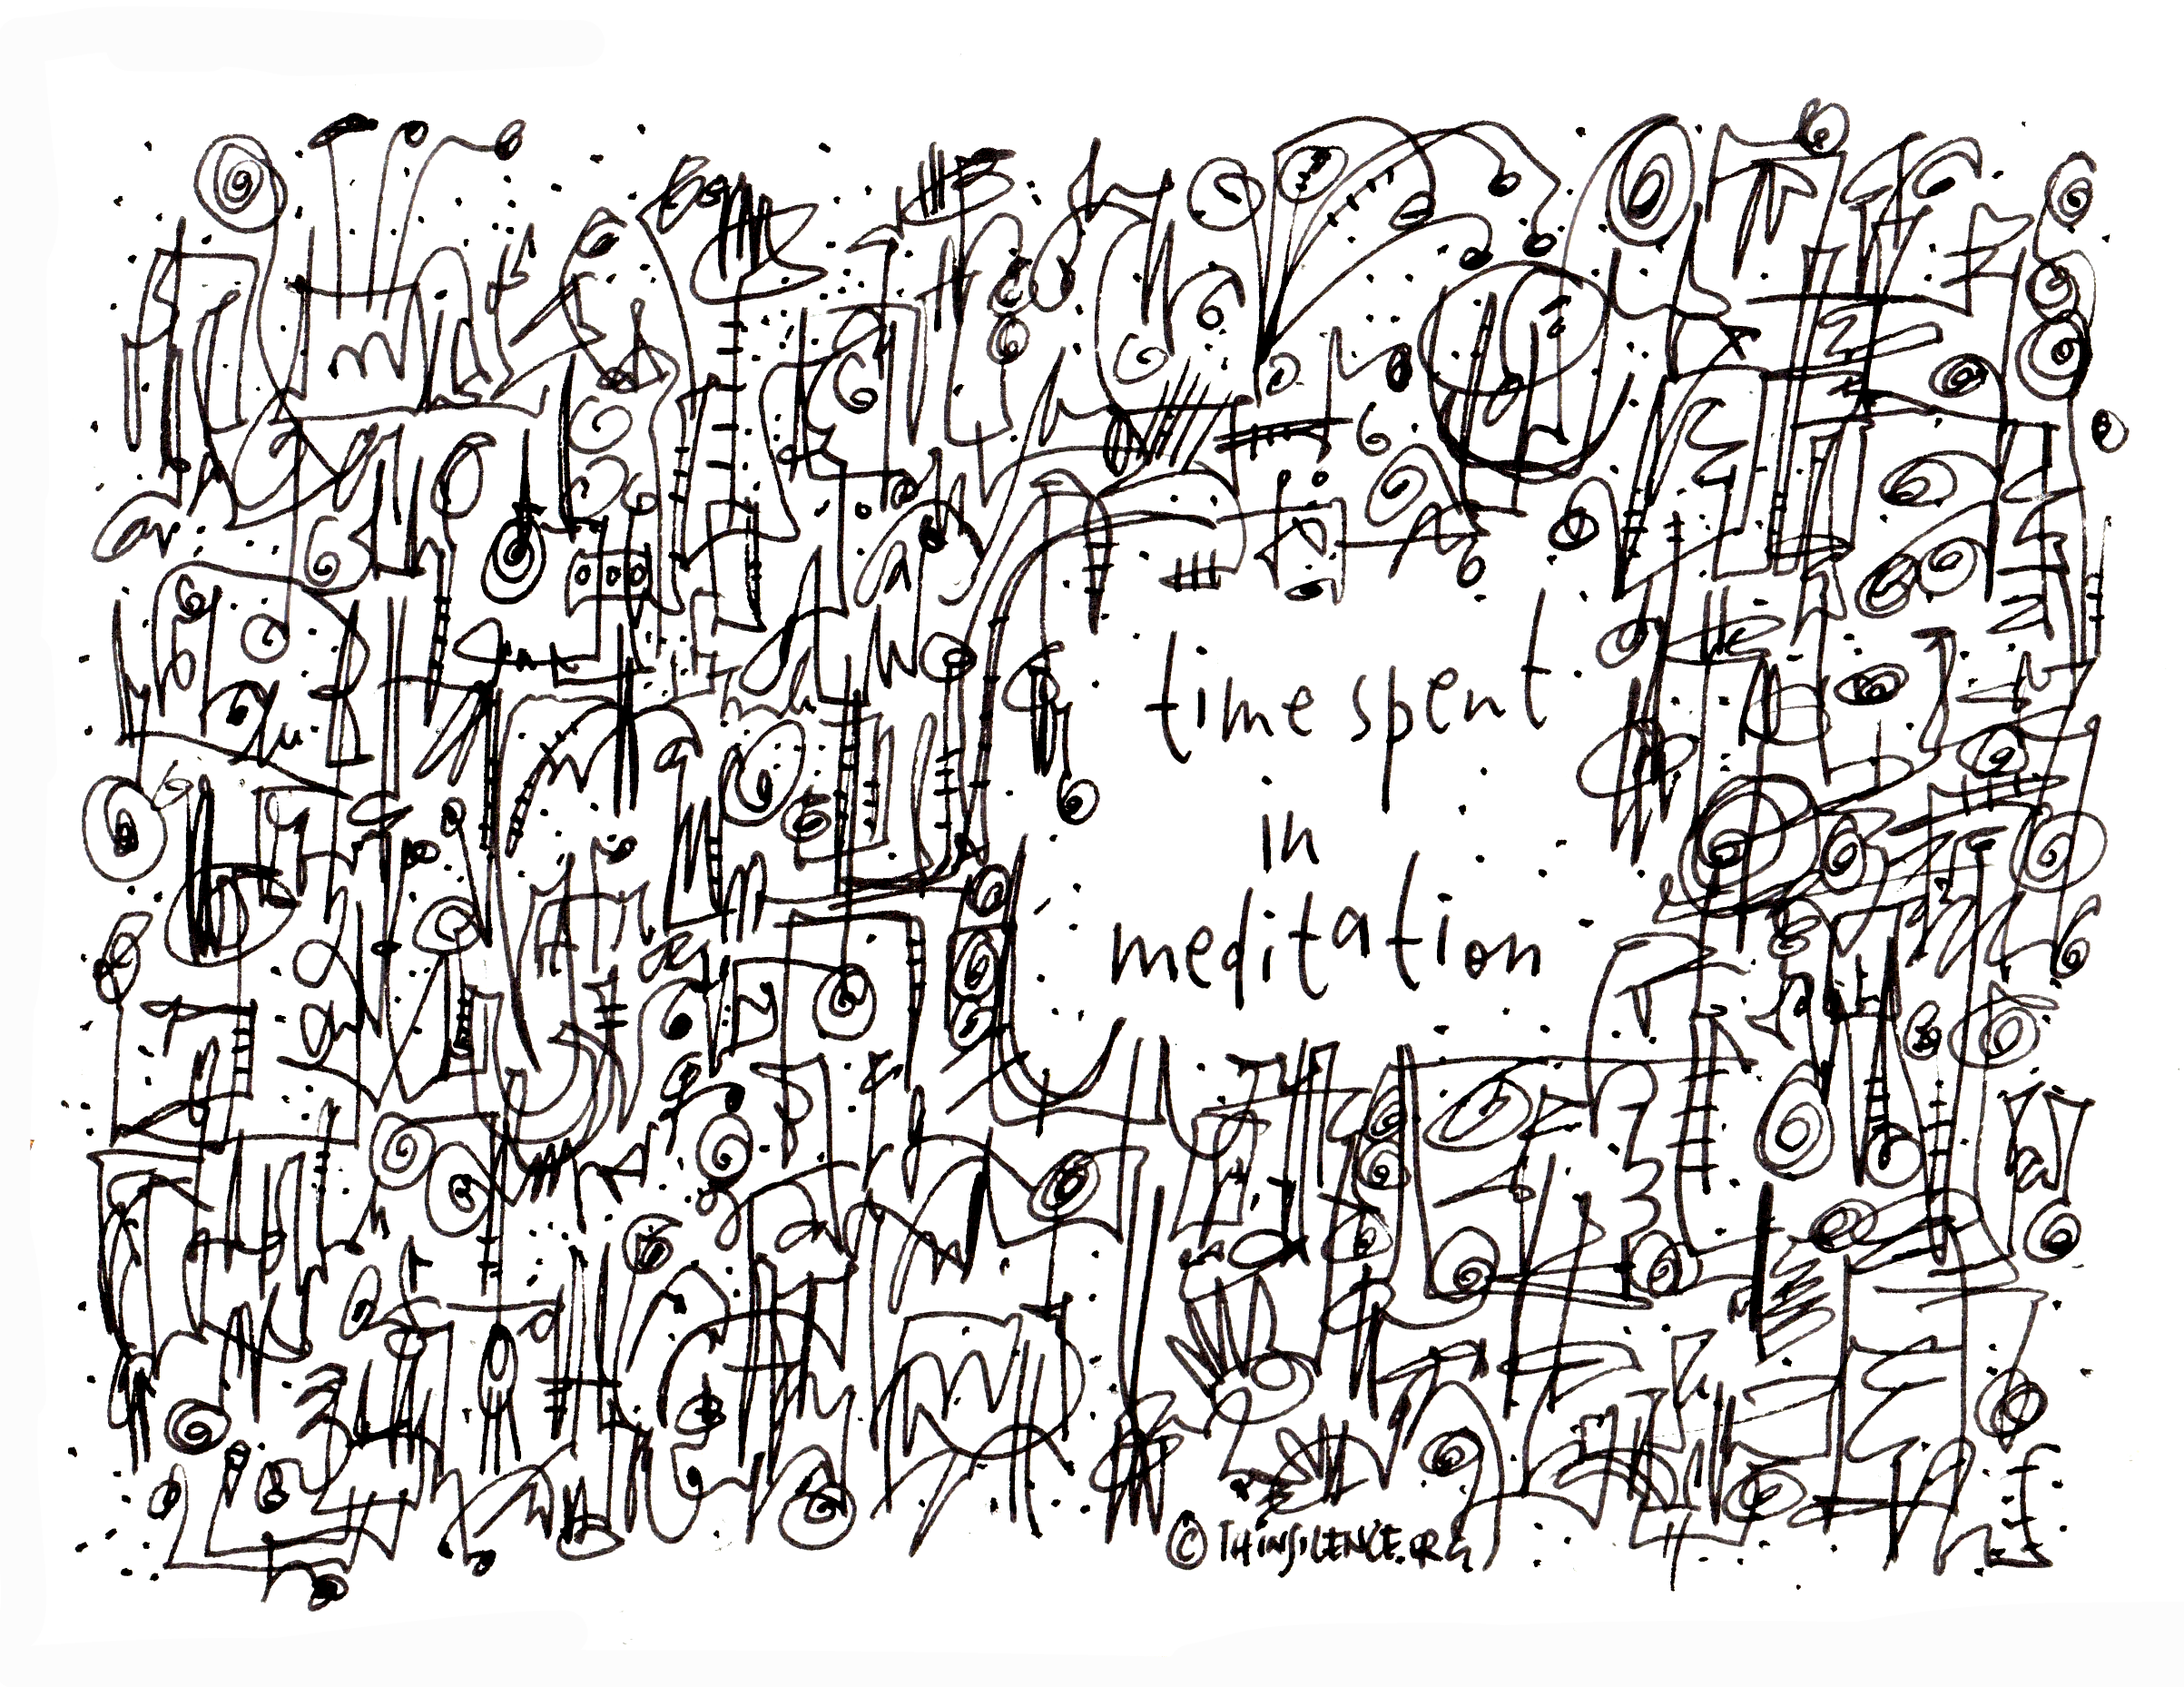 time spent
in
meditation
© THINSILENCE.ORG